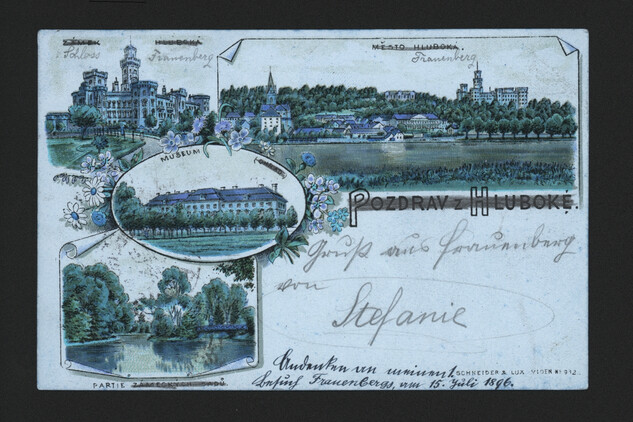 ZÁMEK HLUBOKÁ
Schloss Frauenberg
MĚSTO HLUBOKÁ.
Frauenberg
MUSEUM
POZDRAV Z HLUBOKÉ.
Gruß aus Frauenberg
von
Stefanie
PARTIE SADŮ
Andenken an meinen 1.
Besuch Frauenbergs, am 15. Juli 1896.
SCHNEIDER & LUX WIEN Nº 912.